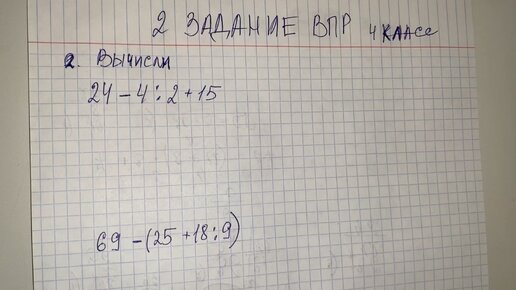 2 ЗАДАНИЕ ВПР 4 КЛАСС
2. ВЫЧИСЛИ
24 - 4 : 2 + 15
69 - (25 + 18 : 9)